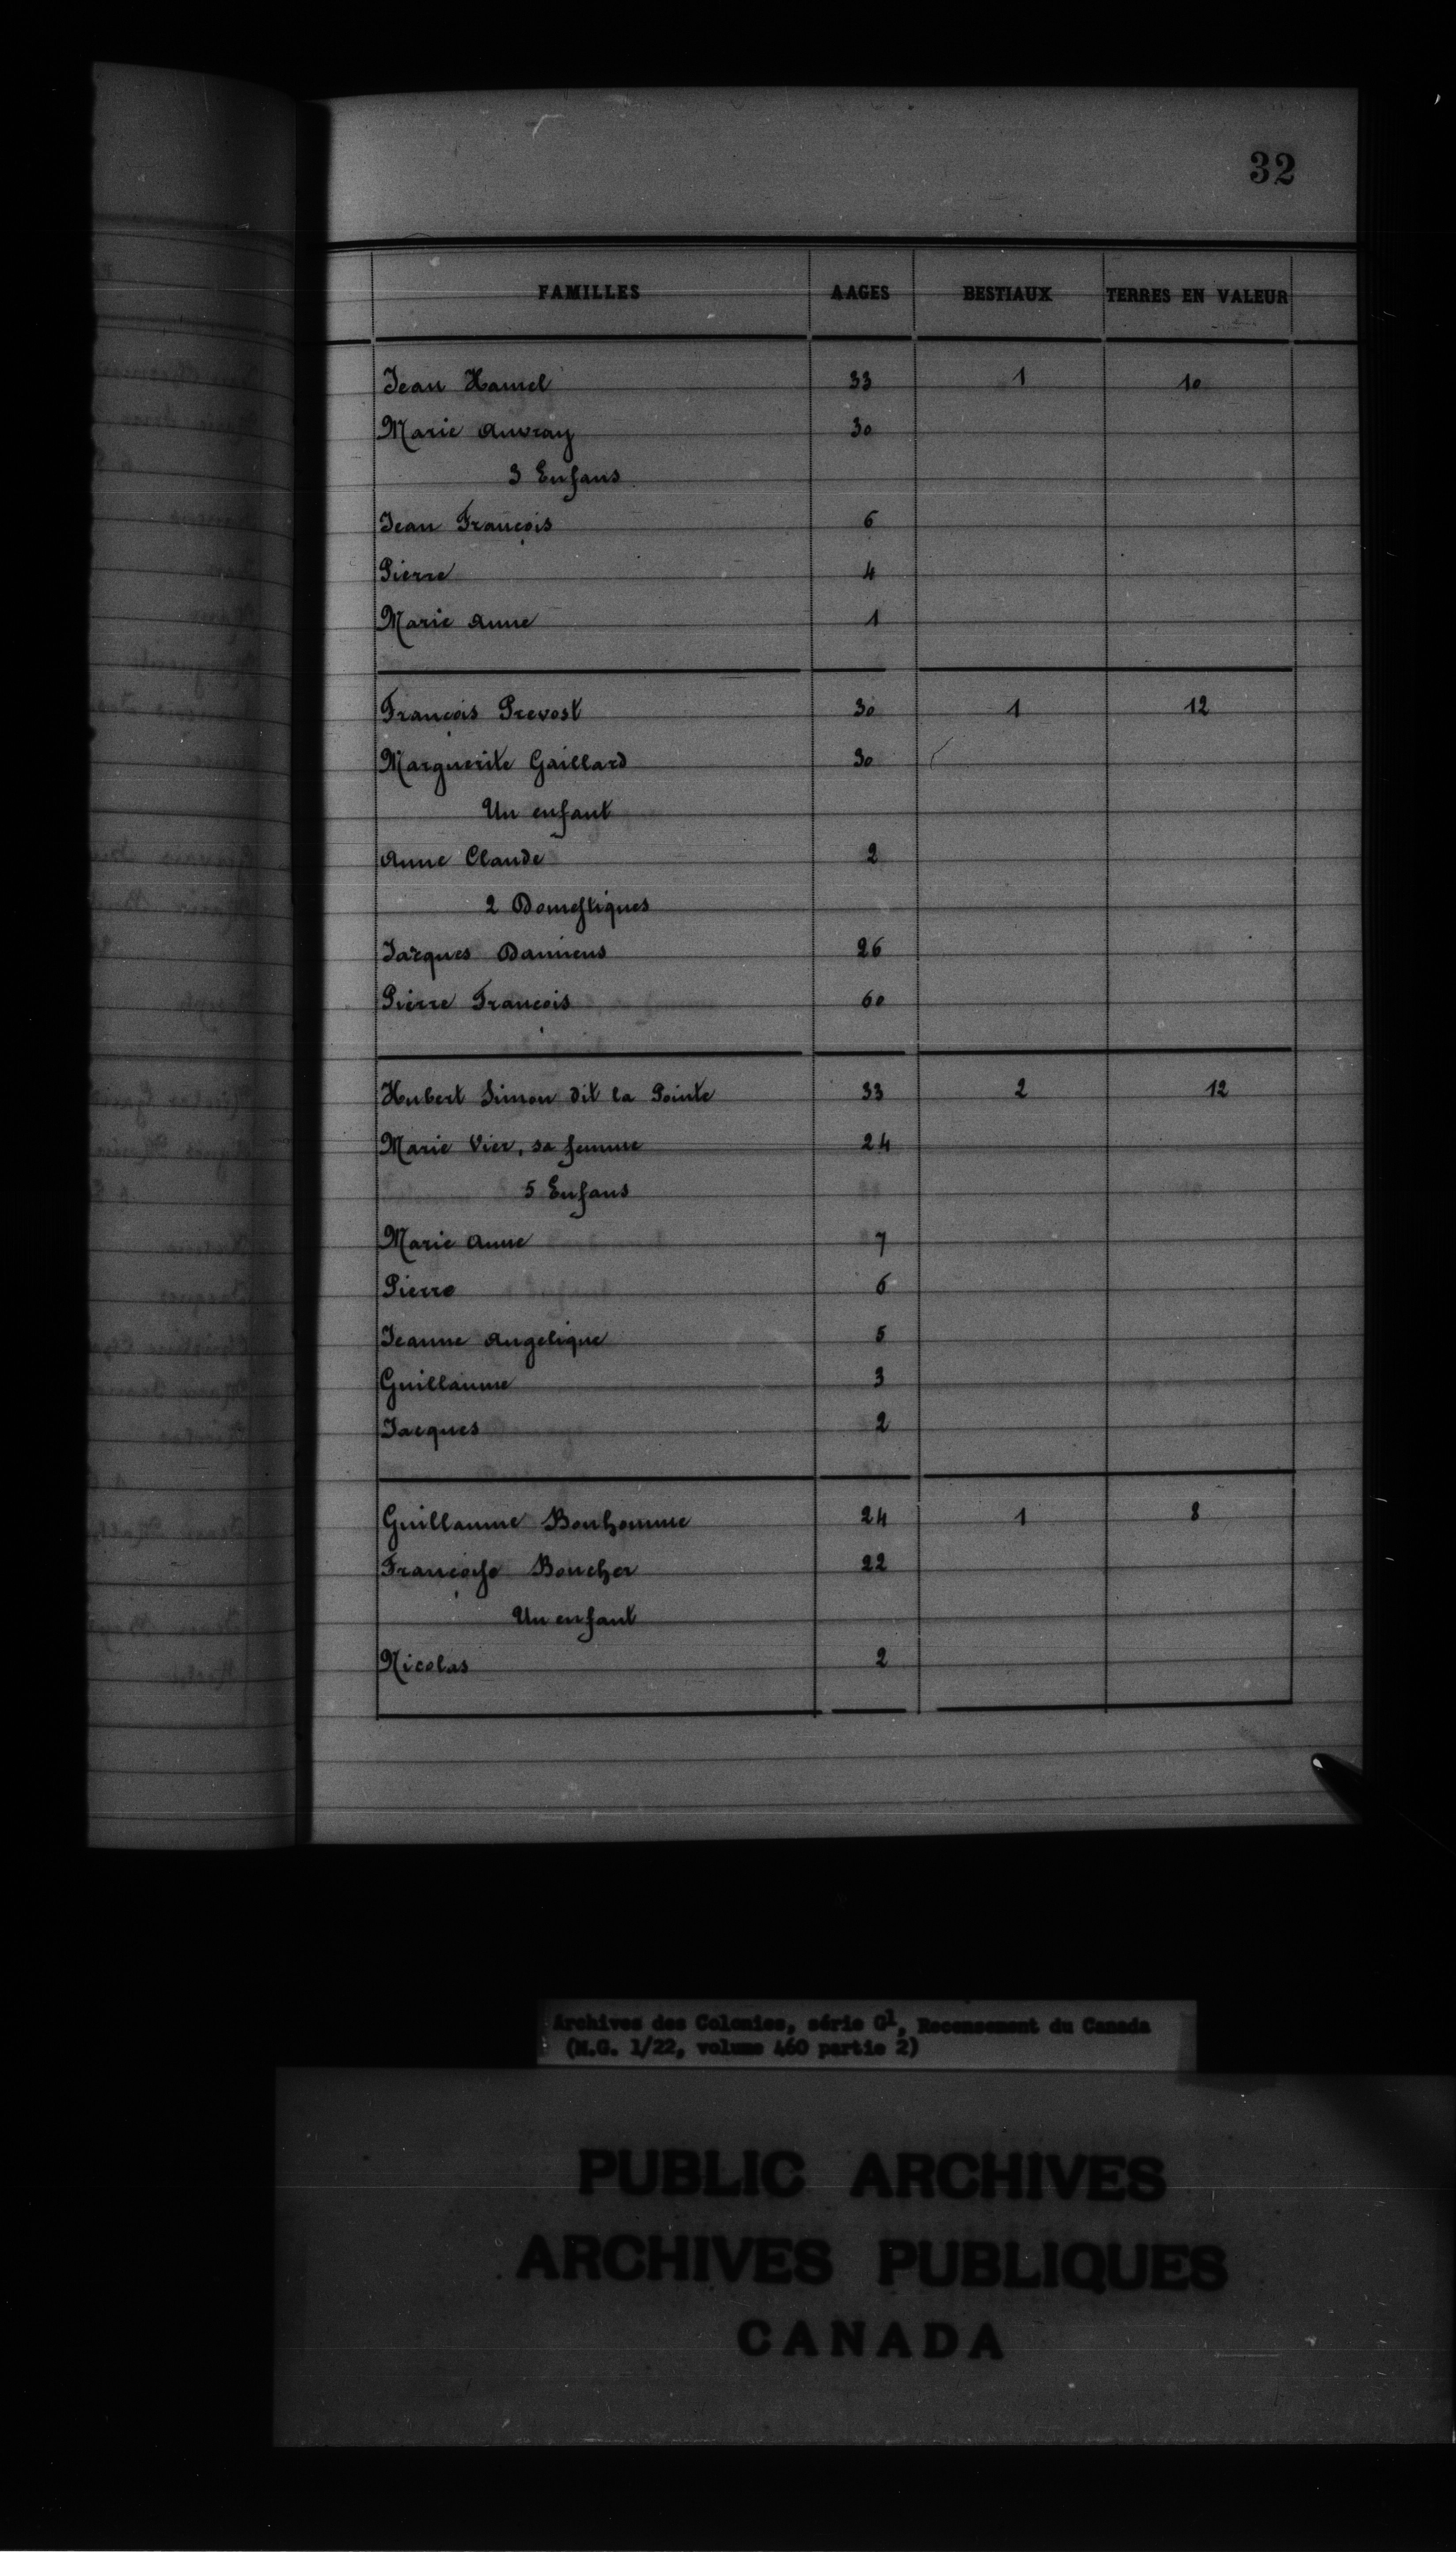 32
FAMILLES AAGES BESTIAUX TERRES EN VALEUR
Jean Hamel 33 1 10
Marie Auvray 30
3 Enfans
Jean François 6
Pierre 4
Marie Anne 1
François Prevost 30 1 12
Marguerite Gaillard 30
Un enfant
Anne Claude 2
2 Domestiques
Jacques Damiens 26
Pierre François 60
Hubert Simon dit la Pointe 33 2 12
Marie Vier, sa femme 24
5 Enfans
Marie Anne 7
Pierre 6
Jeanne Angelique 5
Guillaume 3
Jacques 2
Guillaume Bonhomme 24 1 8
Françoise Boucher 22
Un enfant
Nicolas 2
Archives des Colonies, série G1, Recensement du Canada
(M.G. 1/22, volume 460 partie 2)
PUBLIC ARCHIVES
ARCHIVES PUBLIQUES
CANADA